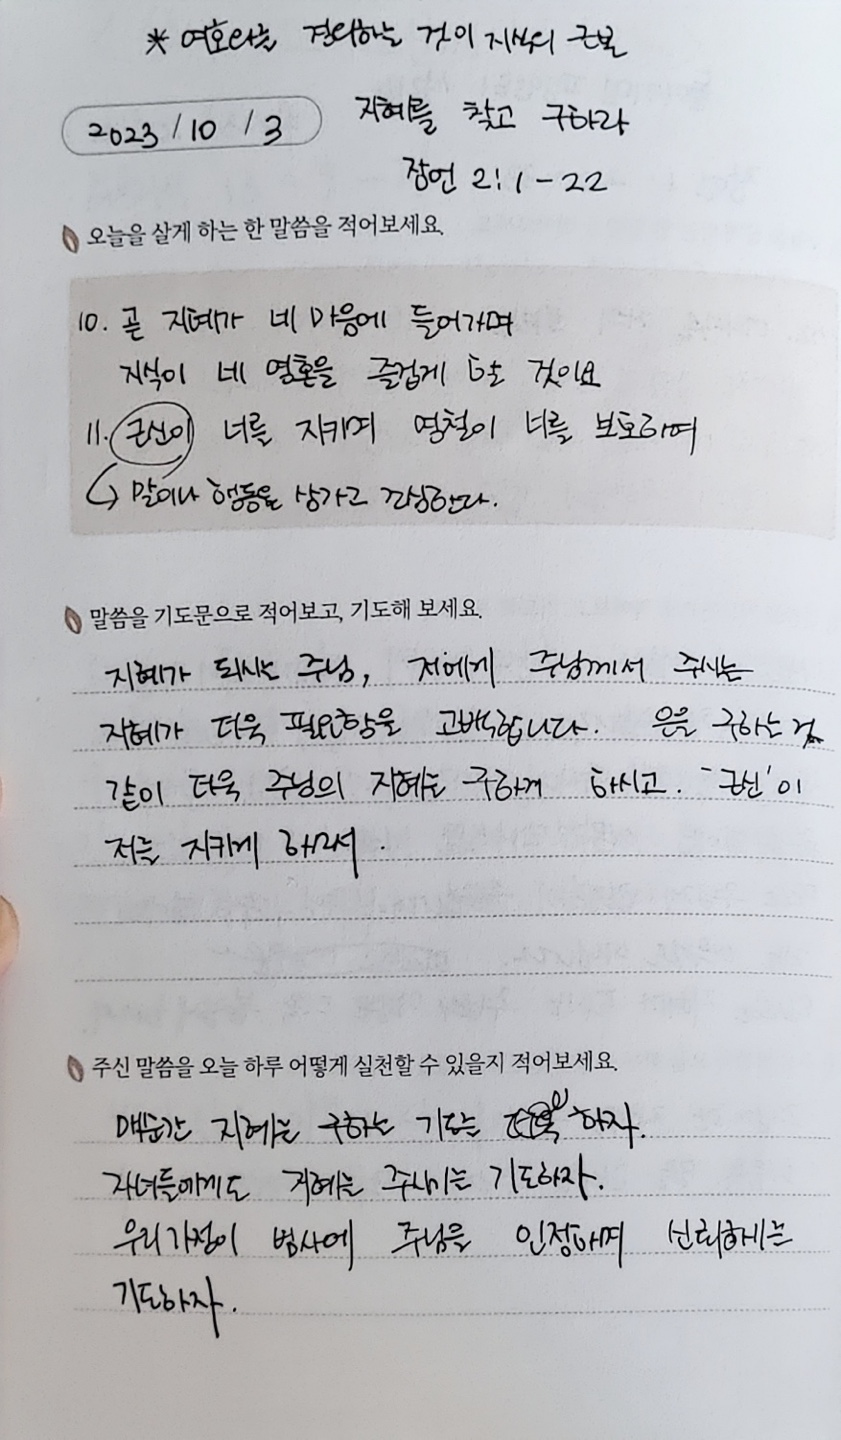 * 여호와를 경외하는 것이 지식의 근본
2023 / 10 / 3
지혜를 찾고 구하라
잠언 2:1-22
오늘을 살게 하는 한 말씀을 적어보세요.
10. 곧 지혜가 네 마음에 들어가며
지식이 네 영혼을 즐겁게 할 것이요
11. 근신이 너를 지키며 명철이 너를 보호하여
말이나 행동을 삼가고 조심한다.
말씀을 기도문으로 적어보고, 기도해 보세요.
지혜가 되시는 주님, 저에게 주님께서 주시는
지혜가 더욱 필요함을 고백합니다. 은을 구하는 것
같이 더욱 주님의 지혜를 구하게 하시고. '근신'이
저를 지키게 하소서.
주신 말씀을 오늘 하루 어떻게 실천할 수 있을지 적어보세요.
매순간 지혜를 구하는 기도를 하자.
자녀들에게도 지혜를 주시기를 기도하자.
우리가정이 범사에 주님을 인정하며 신뢰하기를
기도하자.